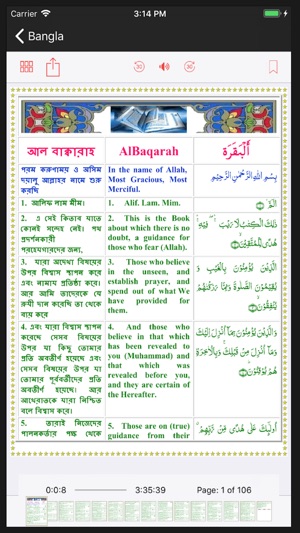 Carrier
3:14 PM
Bangla
30
30
আল বাক্বারাহ
AlBaqarah
أَلْبَقَرَة
পরম করুণাময় ও অসিম
দয়ালু আল্লাহর নামে শুরু
করছি
In the name of Allah,
Most Gracious, Most
Merciful.
بِسْمِ اللهِ الرَّحْمٰنِ الرَّحِيْمِ
1. আলিফ লাম মীম।
1. Alif. Lam. Mim.
الٓمّٓ
2. এ সেই কিতাব যাতে
কোনই সন্দেহ নেই। পথ
প্রদর্শনকারী
পরহেযগারদের জন্য,
2. This is the Book
about which there is no
doubt, a guidance for
those who fear (Allah).
ذٰلِكَ الْكِتٰبُ لَا رَيْبَ فِيْهِ
هُدًى لِّلْمُتَّقِيْنَ
3. যারা অদেখা বিষয়ের
উপর বিশ্বাস স্থাপন করে
এবং নামায প্রতিষ্ঠা করে। আর
আমি তাদেরকে যে
রুযী দান করেছি তা থেকে
ব্যয় করে
3. Those who believe
in the unseen, and
establish prayer, and
spend out of what We
have provided for
them.
الَّذِيْنَ يُؤْمِنُوْنَ بِالْغَيْبِ وَ
يُقِيْمُوْنَ الصَّلٰوةَ وَمِمَّا رَزَقْنٰهُمْ
يُنْفِقُوْنَ
4. এবং যারা বিশ্বাস স্থাপন
করেছে সেসব বিষয়ের
উপর যা কিছু তোমার
প্রতি অবতীর্ণ হয়েছে এবং
সেসব বিষয়ের উপর যা
তোমার পূর্ববর্তীদের প্রতি
অবতীর্ণ হয়েছে। আর
আখেরাতকে যারা নিশ্চিত
বলে বিশ্বাস করে।
4. And those who
believe in that which
has been revealed to
you (Muhammad) and
that which was
revealed before you,
and they are certain of
the Hereafter.
وَالَّذِيْنَ يُؤْمِنُوْنَ بِمَآ اُنْزِلَ اِلَيْكَ
وَمَآ اُنْزِلَ مِنْ قَبْلِكَ وَبِالْاٰخِرَةِ
هُمْ يُوْقِنُوْنَ
5. তারাই নিজেদের
পালনকর্তার পক্ষ থেকে
5. Those are on (true)
guidance from their
اُولٰٓئِكَ عَلٰى هُدًى مِّنْ رَّبِّهِمْ
0:0:8
3:35:39
Page: 1 of 106